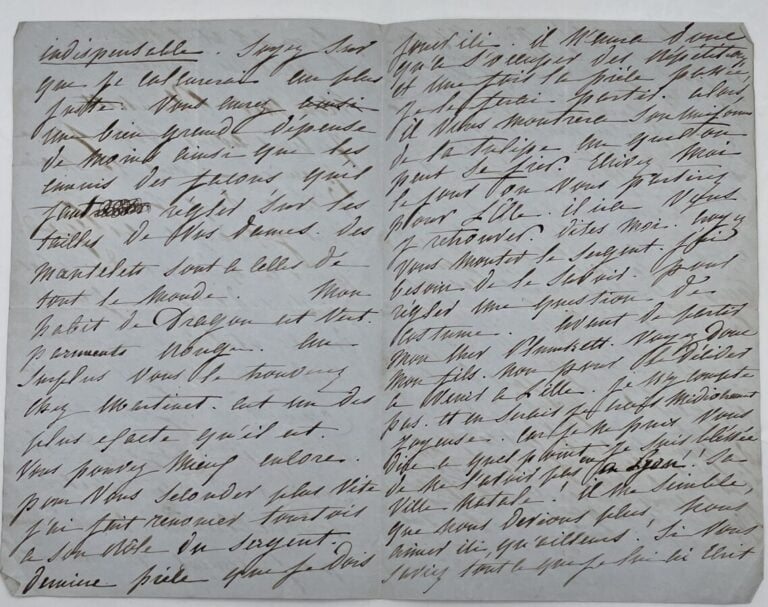 indispensable. Soyez sur
que je calculerai au plus
juste. Vous aurez ainsi
une bien grande dépense
de moins ainsi que les
ennuis des façons qu'il
faut régler sur les
tailles de vos dames. des
mantelets sont à celles de
tout le monde. Mon
habit de Dragon est Vert.
parments rouge. au
surplus vous le trouverez
chez Martinet. est un des
plus exacte qu'il est.
Vous pouvez mieux encore.
pour vous seconder plus vite
j'ai fait renoncer
a son rôle du sergent
dernière pièce que je dois
jouer ici. il n'aura donc
qu'à s'occuper des répétitions
et une fois la pièce passée,
je le ferai partir. alors
il vous montrera son uniforme
de la tulipe au quel on
peut se fier. Ecrivez moi
le jour où vous partirez
pour Lille. il ira vous
y retrouver. dites moi. croyez
vous monter le sergent. j'ai
besoin de le savoir. pour
régler une question de
costume. Avant de partir
mon cher Plunkett. voyez donc
mon fils. non pour le décider
a venir a Lille. je n'y compte
pas. et en serais
joyeuse. car je ne puis vous
dire a quel point je suis blessée
de ne l'avoir plus vu a Lyon! sa
ville natale! il me semble,
que nous devions plus nous
aimer ici, qu'ailleurs! Si vous
saviez tout ce que je lui ai écrit